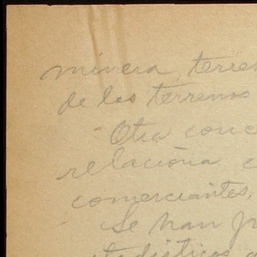 minera, terren
de los terrenos
- Otra conc
relaciona c
comerciantes,
- Se han